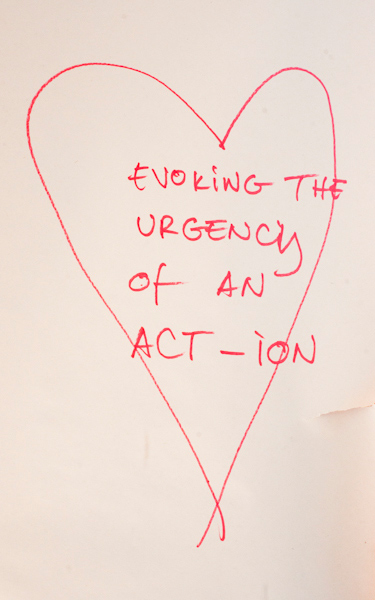 EVOKiNG THE
URGENCy
Of AN
ACT-iON